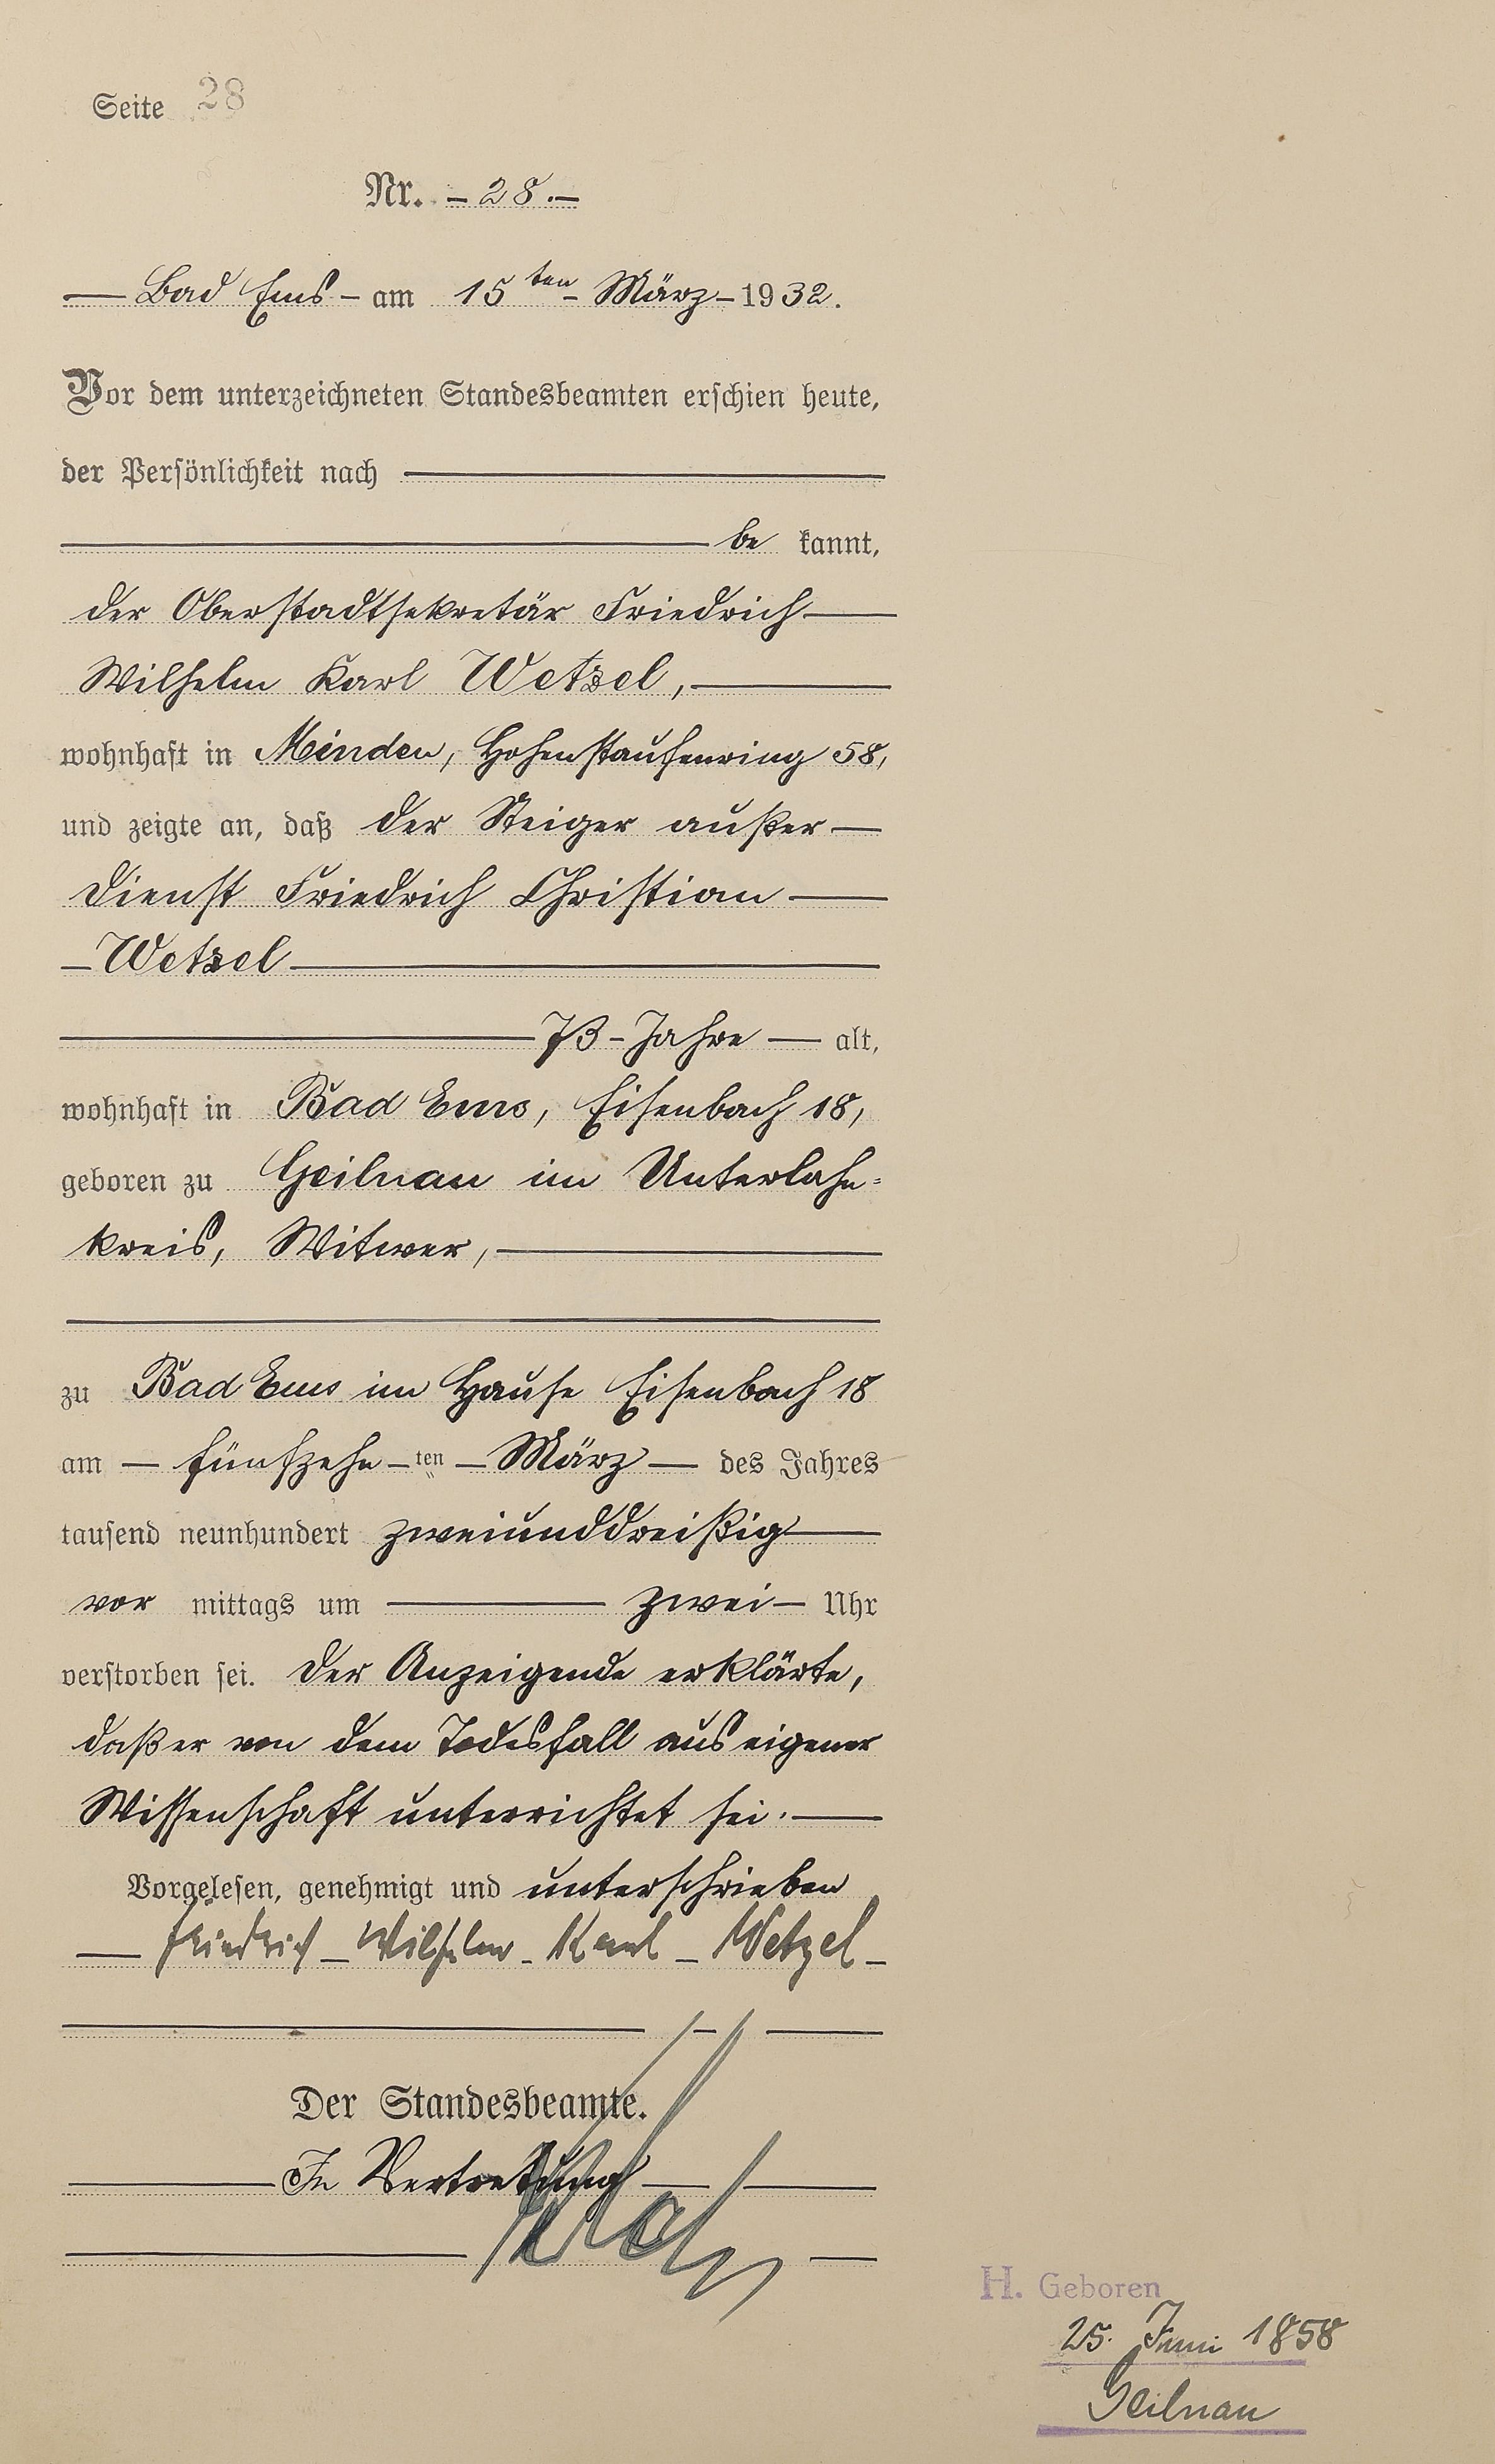 Seite 28
Nr. – 28. –
— Bad Ems – am 15ten – März – 1932.
Vor dem unterzeichneten Standesbeamten erschien heute,
der Persönlichkeit nach
be kannt,
der Oberstadtsekretär Friedrich
Wilhelm Karl Wetzel,
wohnhaft in Minden, Hohenstaufenring 58,
und zeigte an, daß der Steiger außer
Dienst Friedrich Christian
Wetzel
73 – Jahre — alt,
wohnhaft in Bad Ems, Eisenbach 18,
geboren zu Geilnau im Unterlahn=
kreis, Witwer,
zu Bad Ems im Hause Eisenbach 18
am — fünfzehn – ten – März — des Jahres
tausend neunhundert zweiunddreißig
vor mittags um zwei – Uhr
verstorben sei. Der Anzeigende erklärte,
daß er von dem Todesfall aus eigener
Wissenschaft unterrichtet sei.
Vorgelesen, genehmigt und unterschrieben
— Friedrich – Wilhelm – Karl – Wetzel –
Der Standesbeamte.
In Vertretung
H. Geboren
25. Juni 1858
Geilnau